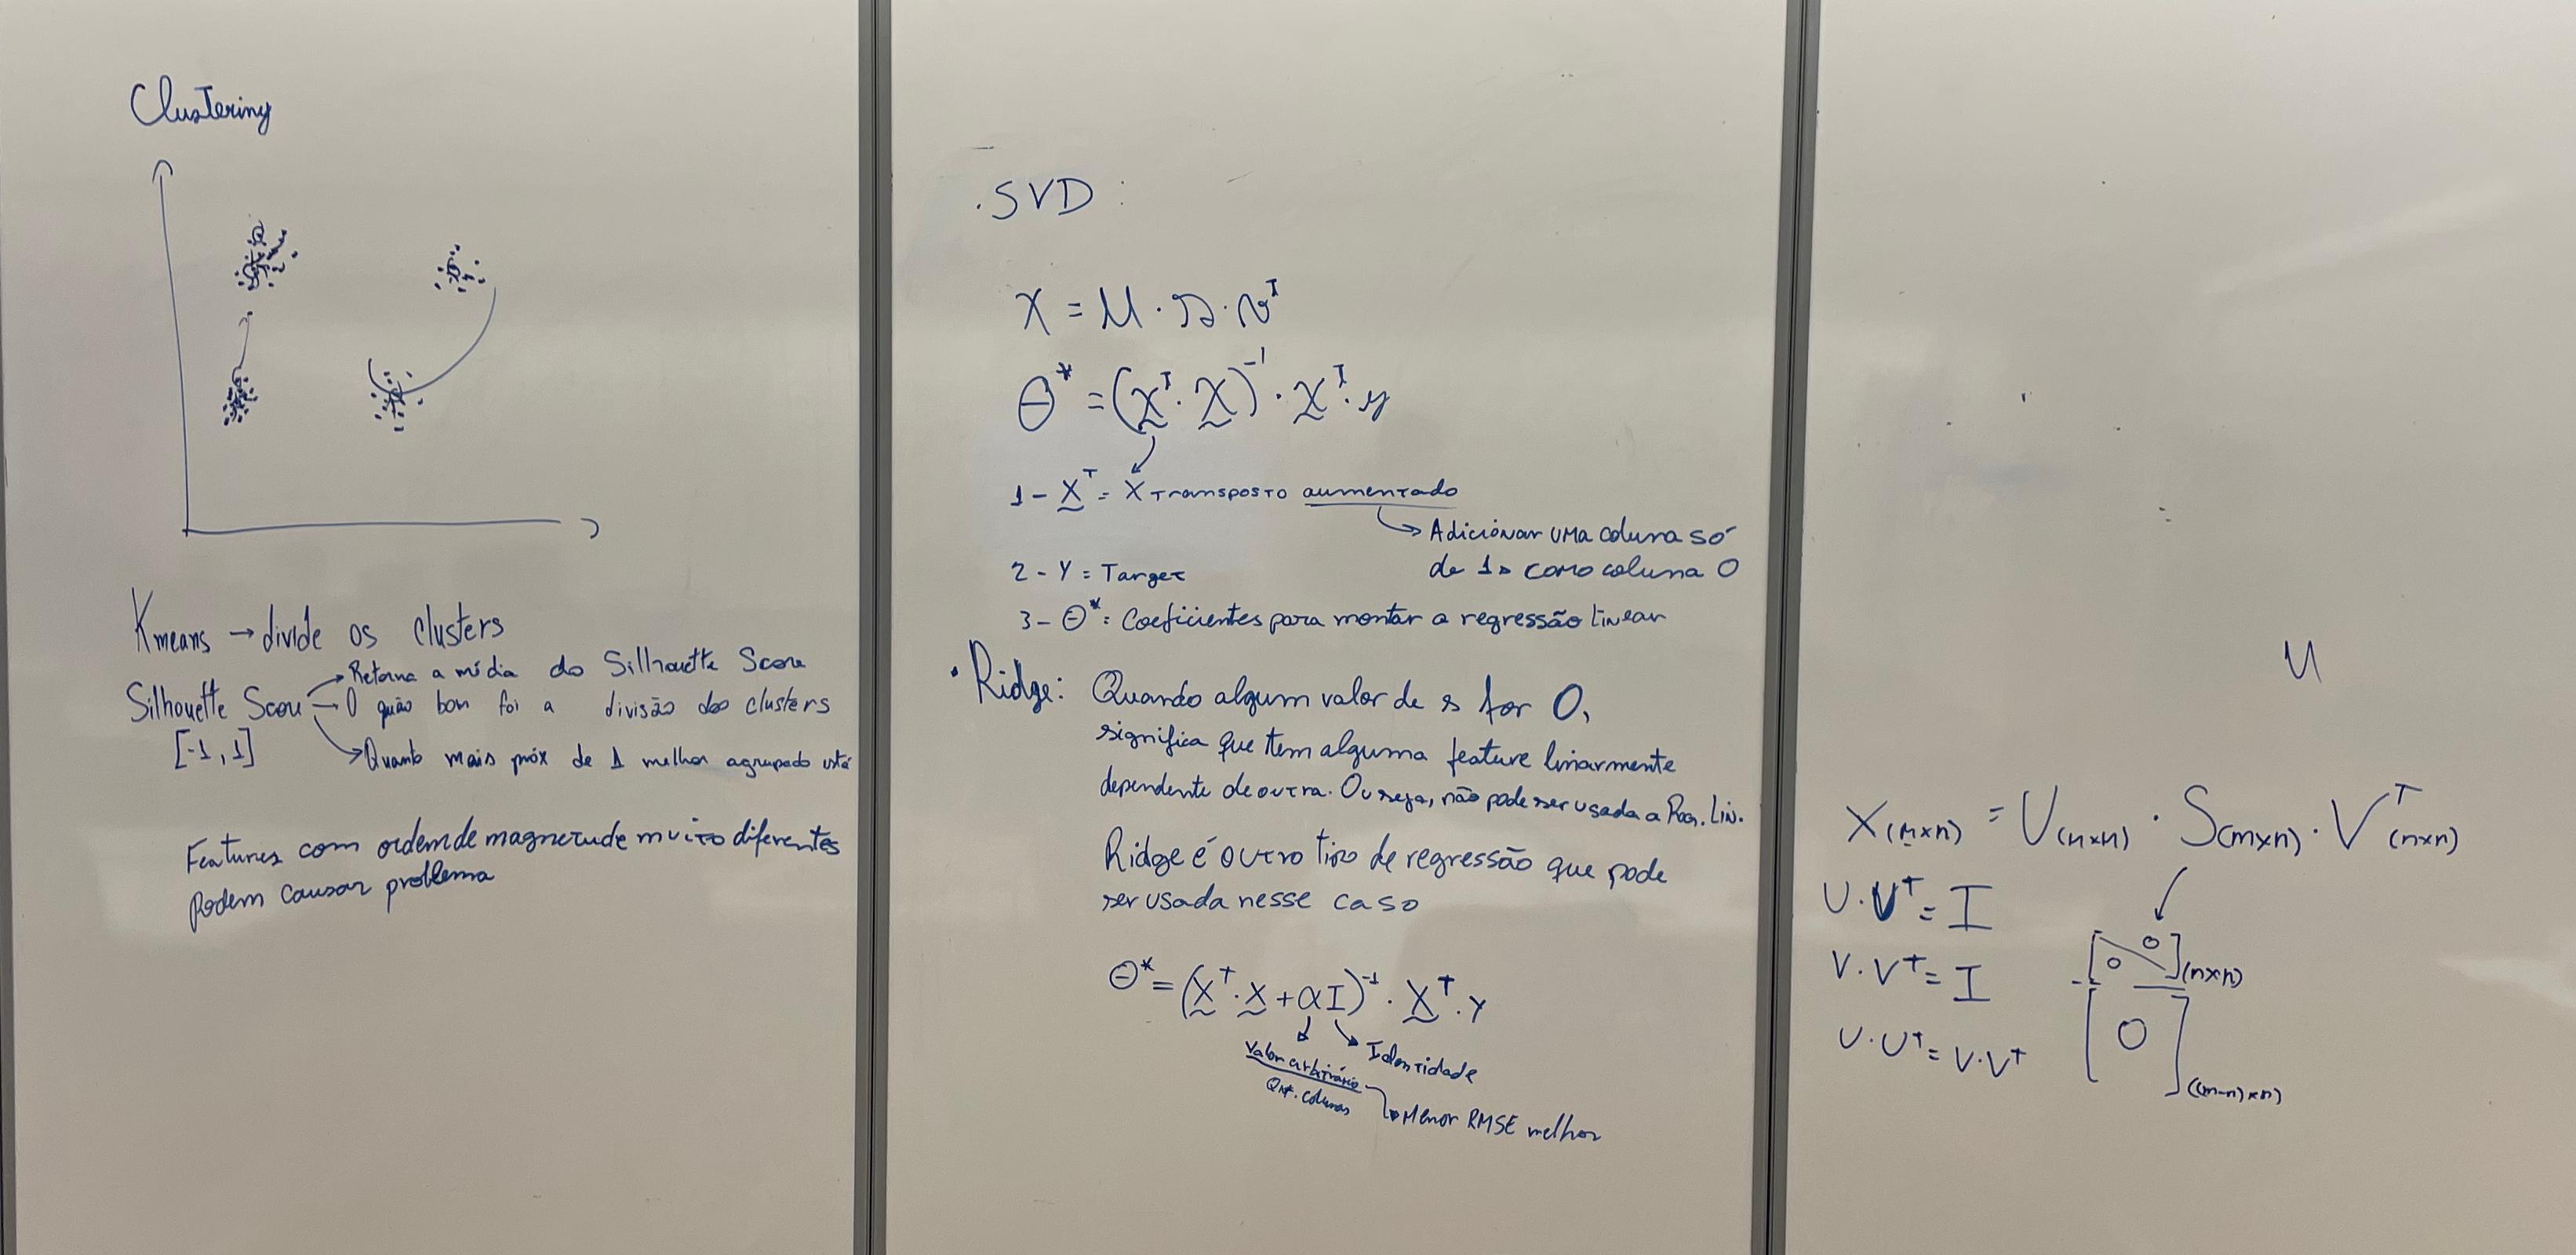 Clustering
Kmeans → divide os clusters
→ Retorna a média do Silhouette Score
Silhouette Score → O quão bom foi a divisão dos clusters
[-1, 1]
→ Quanto mais próx de 1 melhor agrupado está
Features com ordem de magnetude muito diferentes
Podem causar problema
. SVD :
X = U · s · v^T
Θ* = (X^T · X)^-1 · X^T · y
1 - X^T = X Transposto aumentado
→ Adicionar uma coluna só
de 1s como coluna 0
2 - Y = Target
3 - Θ* = Coeficientes para montar a regressão linear
• Ridge: Quando algum valor de s for 0,
significa que tem alguma feature linarmente
dependente de outra. Ou seja, não pode ser usada a Reg. Lin.
Ridge é outro tipo de regressão que pode
ser usada nesse caso
Θ* = (X^T · X + αI)^-1 · X^T · Y
Valor arbitrário
Identidade
colunas
→ Menor RMSE melhor
U
X(m×n) = U(m×m) · S(m×n) · V^T(n×n)
U · U^T = I
V · V^T = I
U · U^T = V · V^T
0
0
(n×n)
0
((m-n)×n)